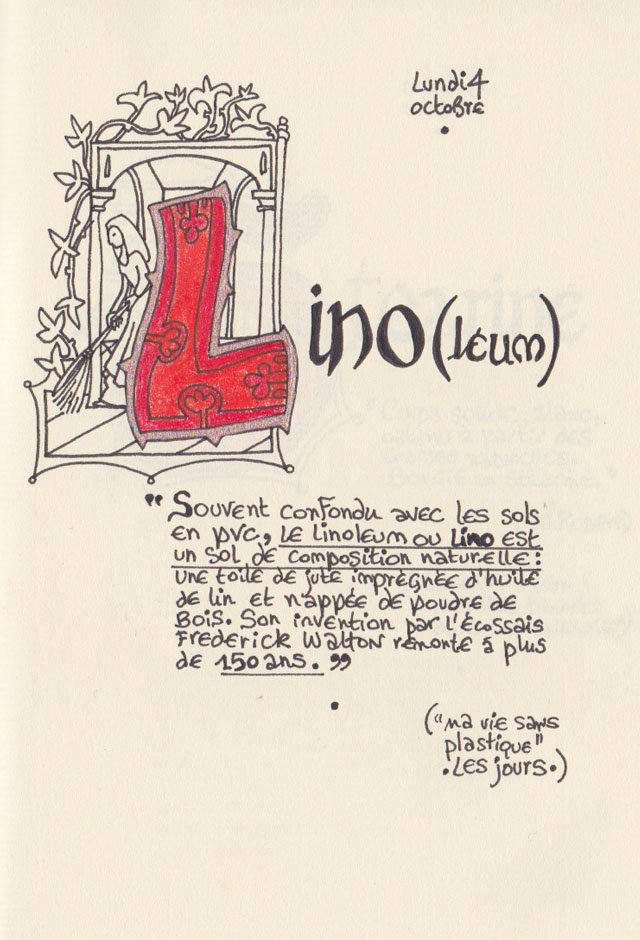 Lundi 4
octobre
Lino(léum)
"Souvent confondu avec les sols
en PVC, le linoleum ou lino est
un sol de composition naturelle:
une toile de jute imprégnée d'huile
de lin et nappée de poudre de
bois. Son invention par l'écossais
Frederick Walton remonte à plus
de 150 ans."
("ma vie sans
plastique"
.Les jours.)